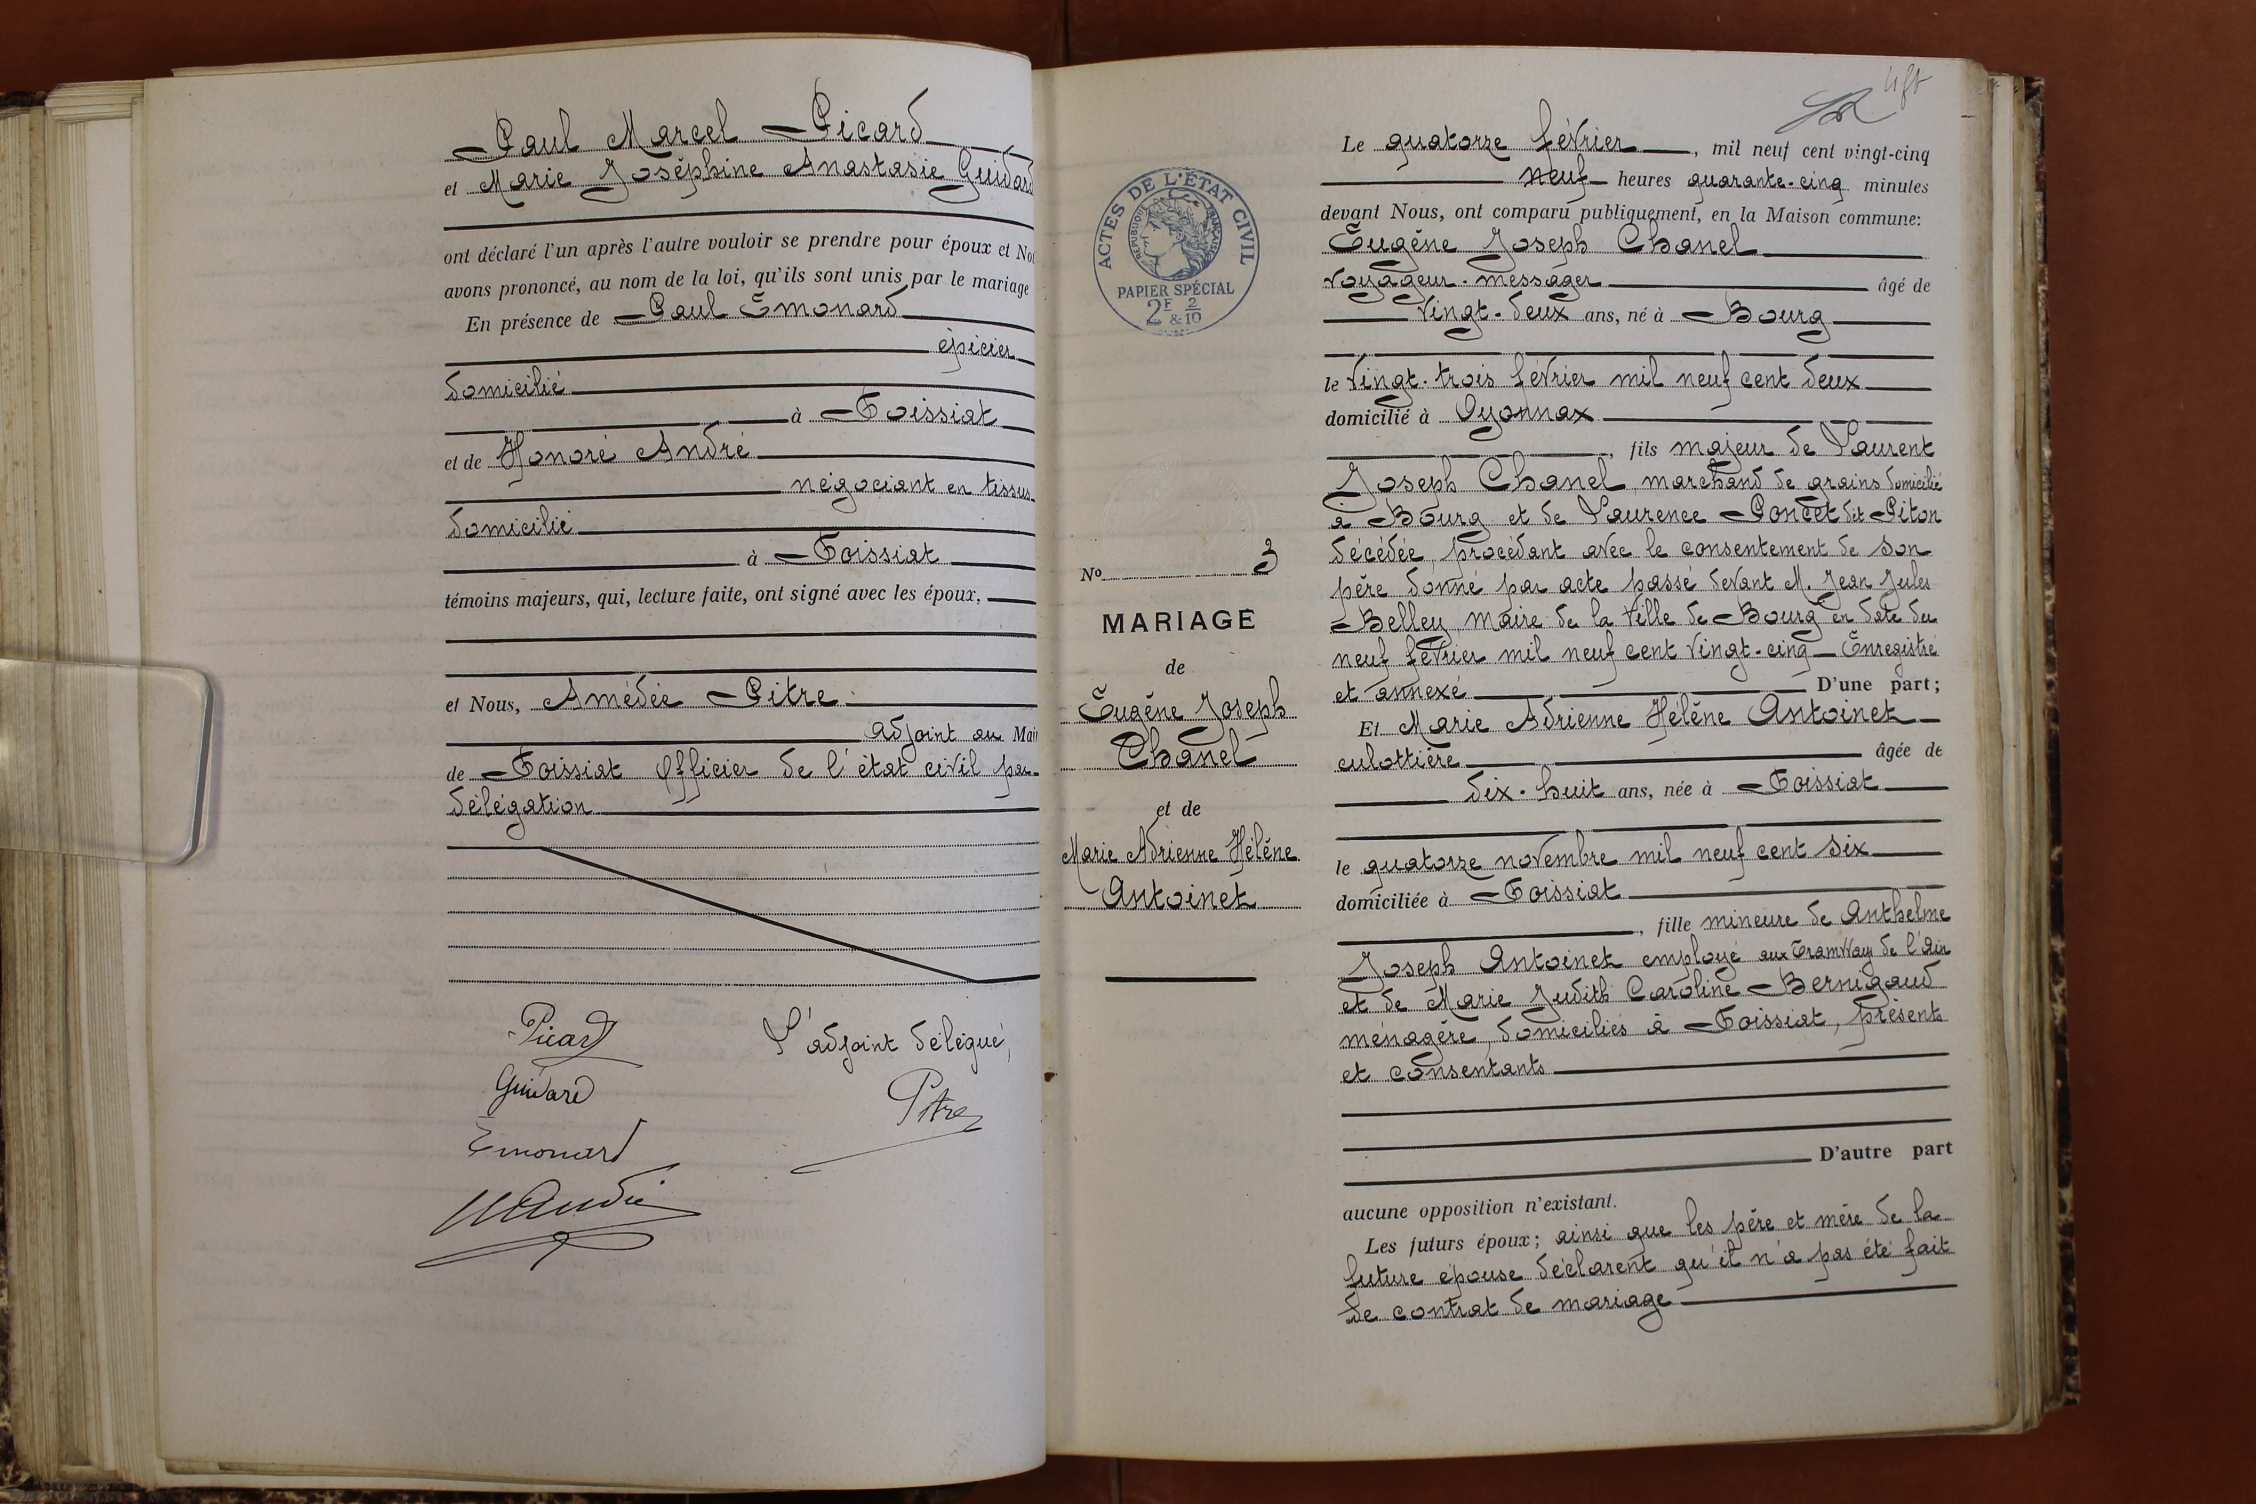 Paul Marcel Picard
et Marie Joséphine Anastasie Guidard
ont déclaré l'un après l'autre vouloir se prendre pour époux et No
avons prononcé, au nom de la loi, qu'ils sont unis par le mariage
En présence de Paul Emonard
épicier
domicilié
à Foissiat
et de Honoré André
négociant en tissus
domicilié
à Foissiat
témoins majeurs, qui, lecture faite, ont signé avec les époux,
et Nous, Amédée Pitre
adjoint au Mai
de Foissiat officier de l'état civil par
délégation
Picard
L'adjoint délégué,
Guidard
Pitre
Emonard
H André
Le quatorze février, mil neuf cent vingt-cinq
neuf heures quarante-cinq minutes
devant Nous, ont comparu publiquement, en la Maison commune:
Eugène Joseph Chanel
voyageur-messager âgé de
vingt-deux ans, né à Bourg
le vingt-trois février mil neuf cent deux
domicilié à Oyonnax
, fils majeur de Laurent
Joseph Chanel, marchand de grains domicilié
à Bourg et de Laurence Poncet dit Piton
décédée, procédant avec le consentement de son
père donné par acte passé devant M. Jean Jules
Belley, maire de la ville de Bourg en date du
neuf février mil neuf cent vingt-cinq Enregistré
et annexé D'une part;
Et Marie Adrienne Hélène Antoinet
culottière âgée de
dix-huit ans, née à Foissiat
le quatorze novembre mil neuf cent six
domiciliée à Foissiat
, fille mineure de Anthelme
Joseph Antoinet employé aux Tramway de l'Ain
et de Marie Judith Caroline Bernigaud
ménagère, domiciliés à Foissiat, présents
et consentants
D'autre part
aucune opposition n'existant.
Les futurs époux; ainsi que les père et mère de la
future épouse déclarent qu'il n'a pas été fait
de contrat de mariage
ACTES DE L'ÉTAT CIVIL
RÉPUBLIQUE FRANÇAISE
PAPIER SPÉCIAL
2F & 2/10
No 3
MARIAGE
de
Eugène Joseph
Chanel
et de
Marie Adrienne Hélène
Antoinet